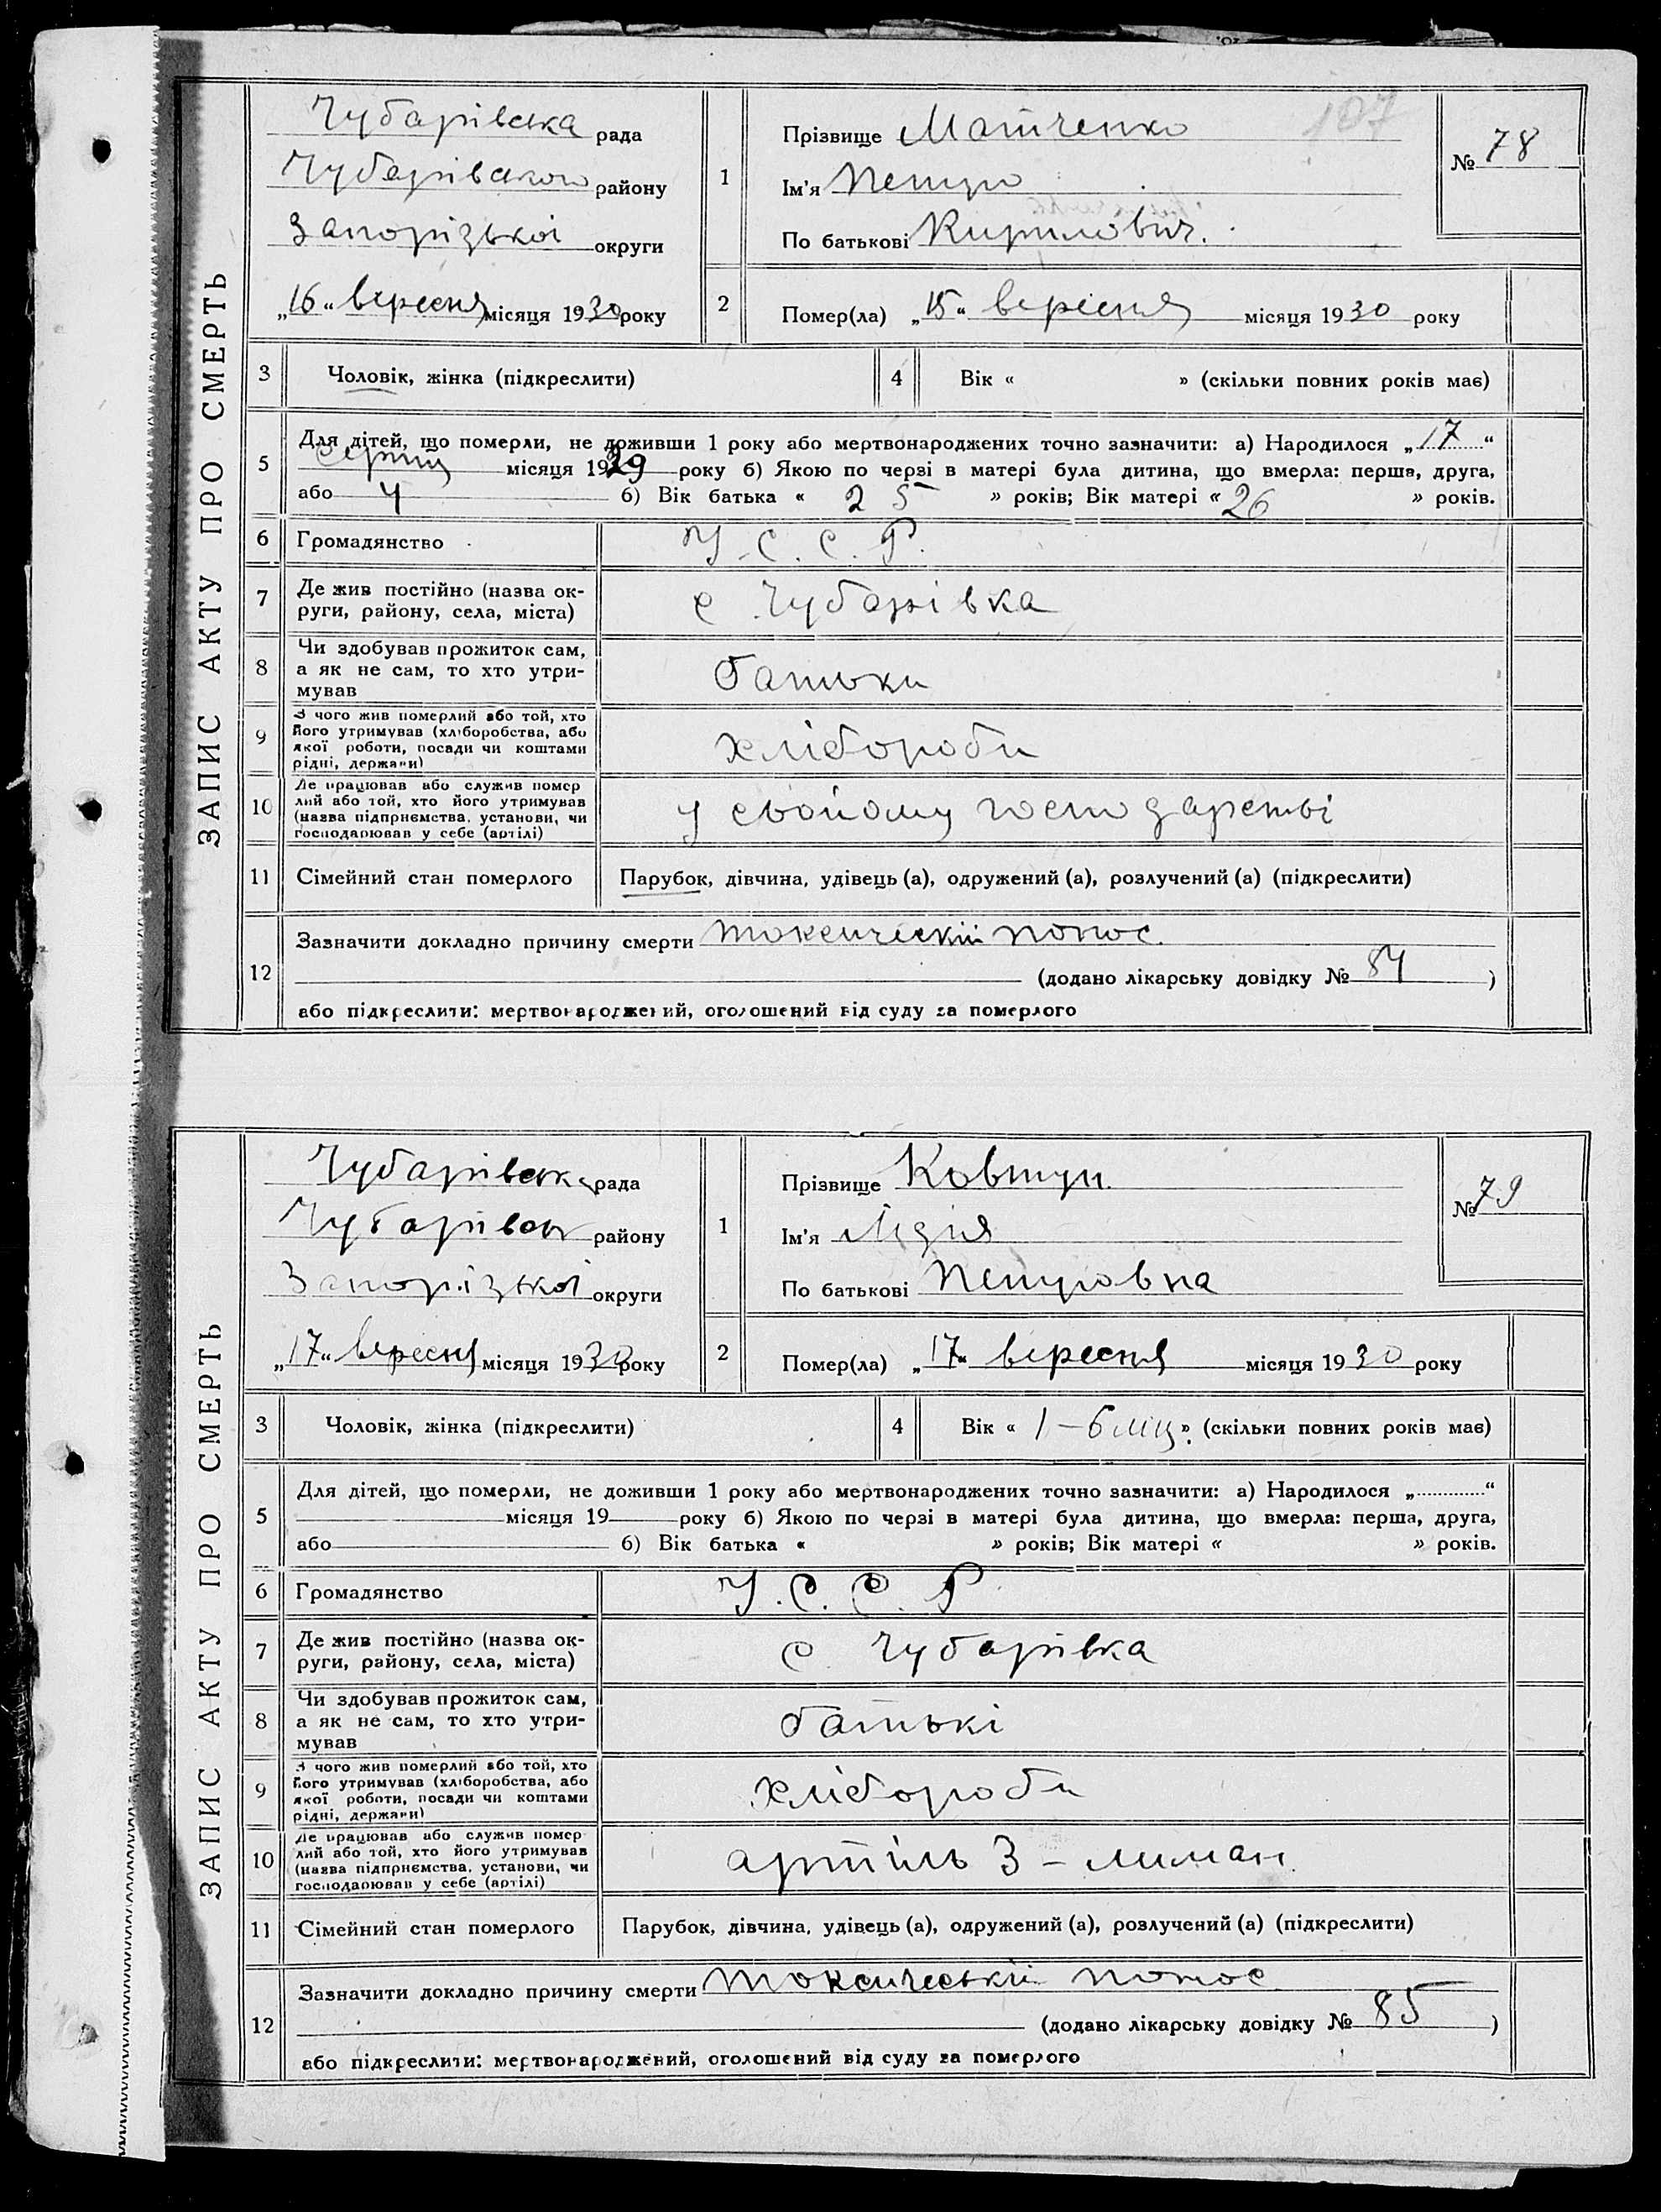 107
ЗАПИС АКТУ ПРО СМЕРТЬ
Чубарівська рада
Чубарівского району
Запорізької округи
„16“ вересня місяця 1930 року
1
Прізвище Матченко
Ім'я Петро
По батькові Кирилович.
№ 78
2
Помер(ла) „15“ вересня місяця 1930 року
3 Чоловік, жінка (підкреслити)
4 Вік « » (скільки повних років має)
5
Для дітей, що померли, не доживши 1 року або мертвонароджених точно зазначити: а) Народилося „17“
серпня місяця 1929 року б) Якою по черзі в матері була дитина, що вмерла: перша, друга,
або 4 б) Вік батька « 25 » років; Вік матері « 26 » років.
6 Громадянство У. С. С. Р.
7 Де жив постійно (назва ок-
руги, району, села, міста)
с Чубарівка
8 Чи здобував прожиток сам,
а як не сам, то хто утри-
мував
батьки
9 З чого жив померлий або той, хто
його утримував (хліборобства, або
якої роботи, посади чи коштами
рідні, держави)
хлібороби
10 Де працював або служив помер
лий або той, хто його утримував
(назва підприємства, установи, чи
господарював у себе (артілі)
у свойому господарстві
11 Сімейний стан померлого Парубок, дівчина, удівець (а), одружений (а), розлучений (а) (підкреслити)
12
Зазначити докладно причину смерти токсический понос.
(додано лікарську довідку № 84 )
або підкреслити: мертвонароджений, оголошений від суду за померлого
ЗАПИС АКТУ ПРО СМЕРТЬ
Чубарівська рада
району
Запорізької округи
„17“ вересня місяця 1930 року
1
Прізвище Ковтун
Ім'я Лідія
По батькові Петровна
№ 79
2
Помер(ла) „17“ вересня місяця 1930 року
3 Чоловік, жінка (підкреслити)
4 Вік « 1 – 6 міц » (скільки повних років має)
5
Для дітей, що померли, не доживши 1 року або мертвонароджених точно зазначити: а) Народилося „ “
місяця 19 року б) Якою по черзі в матері була дитина, що вмерла: перша, друга,
або б) Вік батька « » років; Вік матері « » років.
6 Громадянство У. С. С. Р.
7 Де жив постійно (назва ок-
руги, району, села, міста)
с. Чубарівка
8 Чи здобував прожиток сам,
а як не сам, то хто утри-
мував
батькі
9 З чого жив померлий або той, хто
його утримував (хліборобства, або
якої роботи, посади чи коштами
рідні, держави)
хлібороби
10 Де працював або служив помер
лий або той, хто його утримував
(назва підприємства, установи, чи
господарював у себе (артілі)
артіль 3 – лиман
11 Сімейний стан померлого Парубок, дівчина, удівець (а), одружений (а), розлучений (а) (підкреслити)
12
Зазначити докладно причину смерти токсический понос
(додано лікарську довідку № 85 )
або підкреслити: мертвонароджений, оголошений від суду за померлого